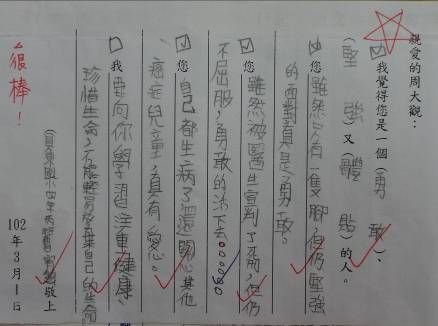 親愛的周大觀：
☑我覺得您是一個(勇敢)、
(堅強)又(體貼)的人。
☑您雖然只有一隻腳，但仍堅強
的面對真是勇敢。
☑您雖然被醫生宣判了死刑，但仍
不屈服，勇敢的活下去。
☑您自己都生病了還關心其他
癌症兒童，真有愛心。
□我要向你學習注重健康、
珍惜生命，不能輕易放棄自己的生命。
國小四年丙班 敬上
102年3月1日
很棒！